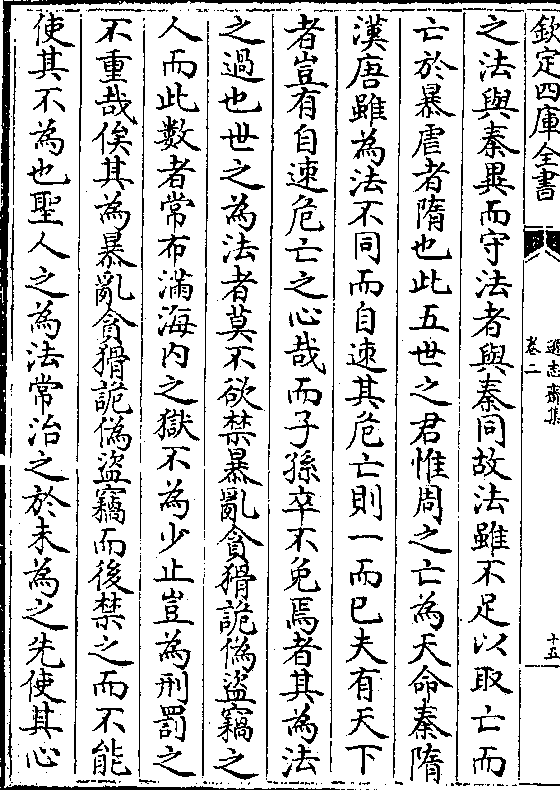 欽定四庫全書
遜志齋集
卷二
十五
之法與秦異而守法者與秦同故法雖不足以取亡而
亡於暴虐者隋也此五世之君惟周之亡為天命秦隋
漢唐雖為法不同而自速其危亡則一而已夫有天下
者豈有自速危亡之心哉而子孫卒不免焉者其為法
之過也世之為法者莫不欲禁暴亂貪猾詭偽盜竊之
人而此數者常布滿海内之獄不為少止豈為刑罰之
不重哉俟其為暴亂貪猾詭偽盜竊而後禁之而不能
使其不為也聖人之為法常治之於未為之先使其心